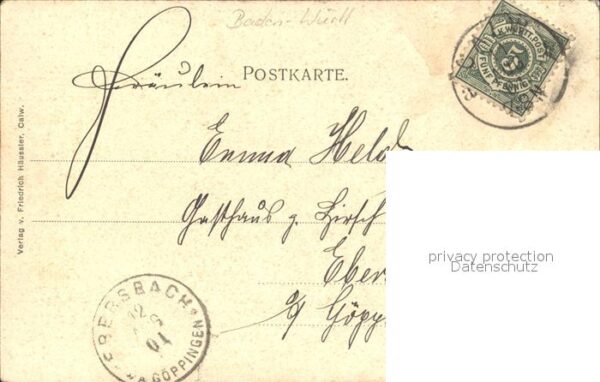 Baden-Württ
K.WÜRTT.POST
5
FÜNF PFENNIG
POSTKARTE.
Fräulein
Emma Held
Gasthaus z. Hirsch
Eber
a/ Göpp
Verlag v. Friedrich Häussler, Calw.
privacy protection
Datenschutz
EBERSBACH
12
01
GÖPPINGEN